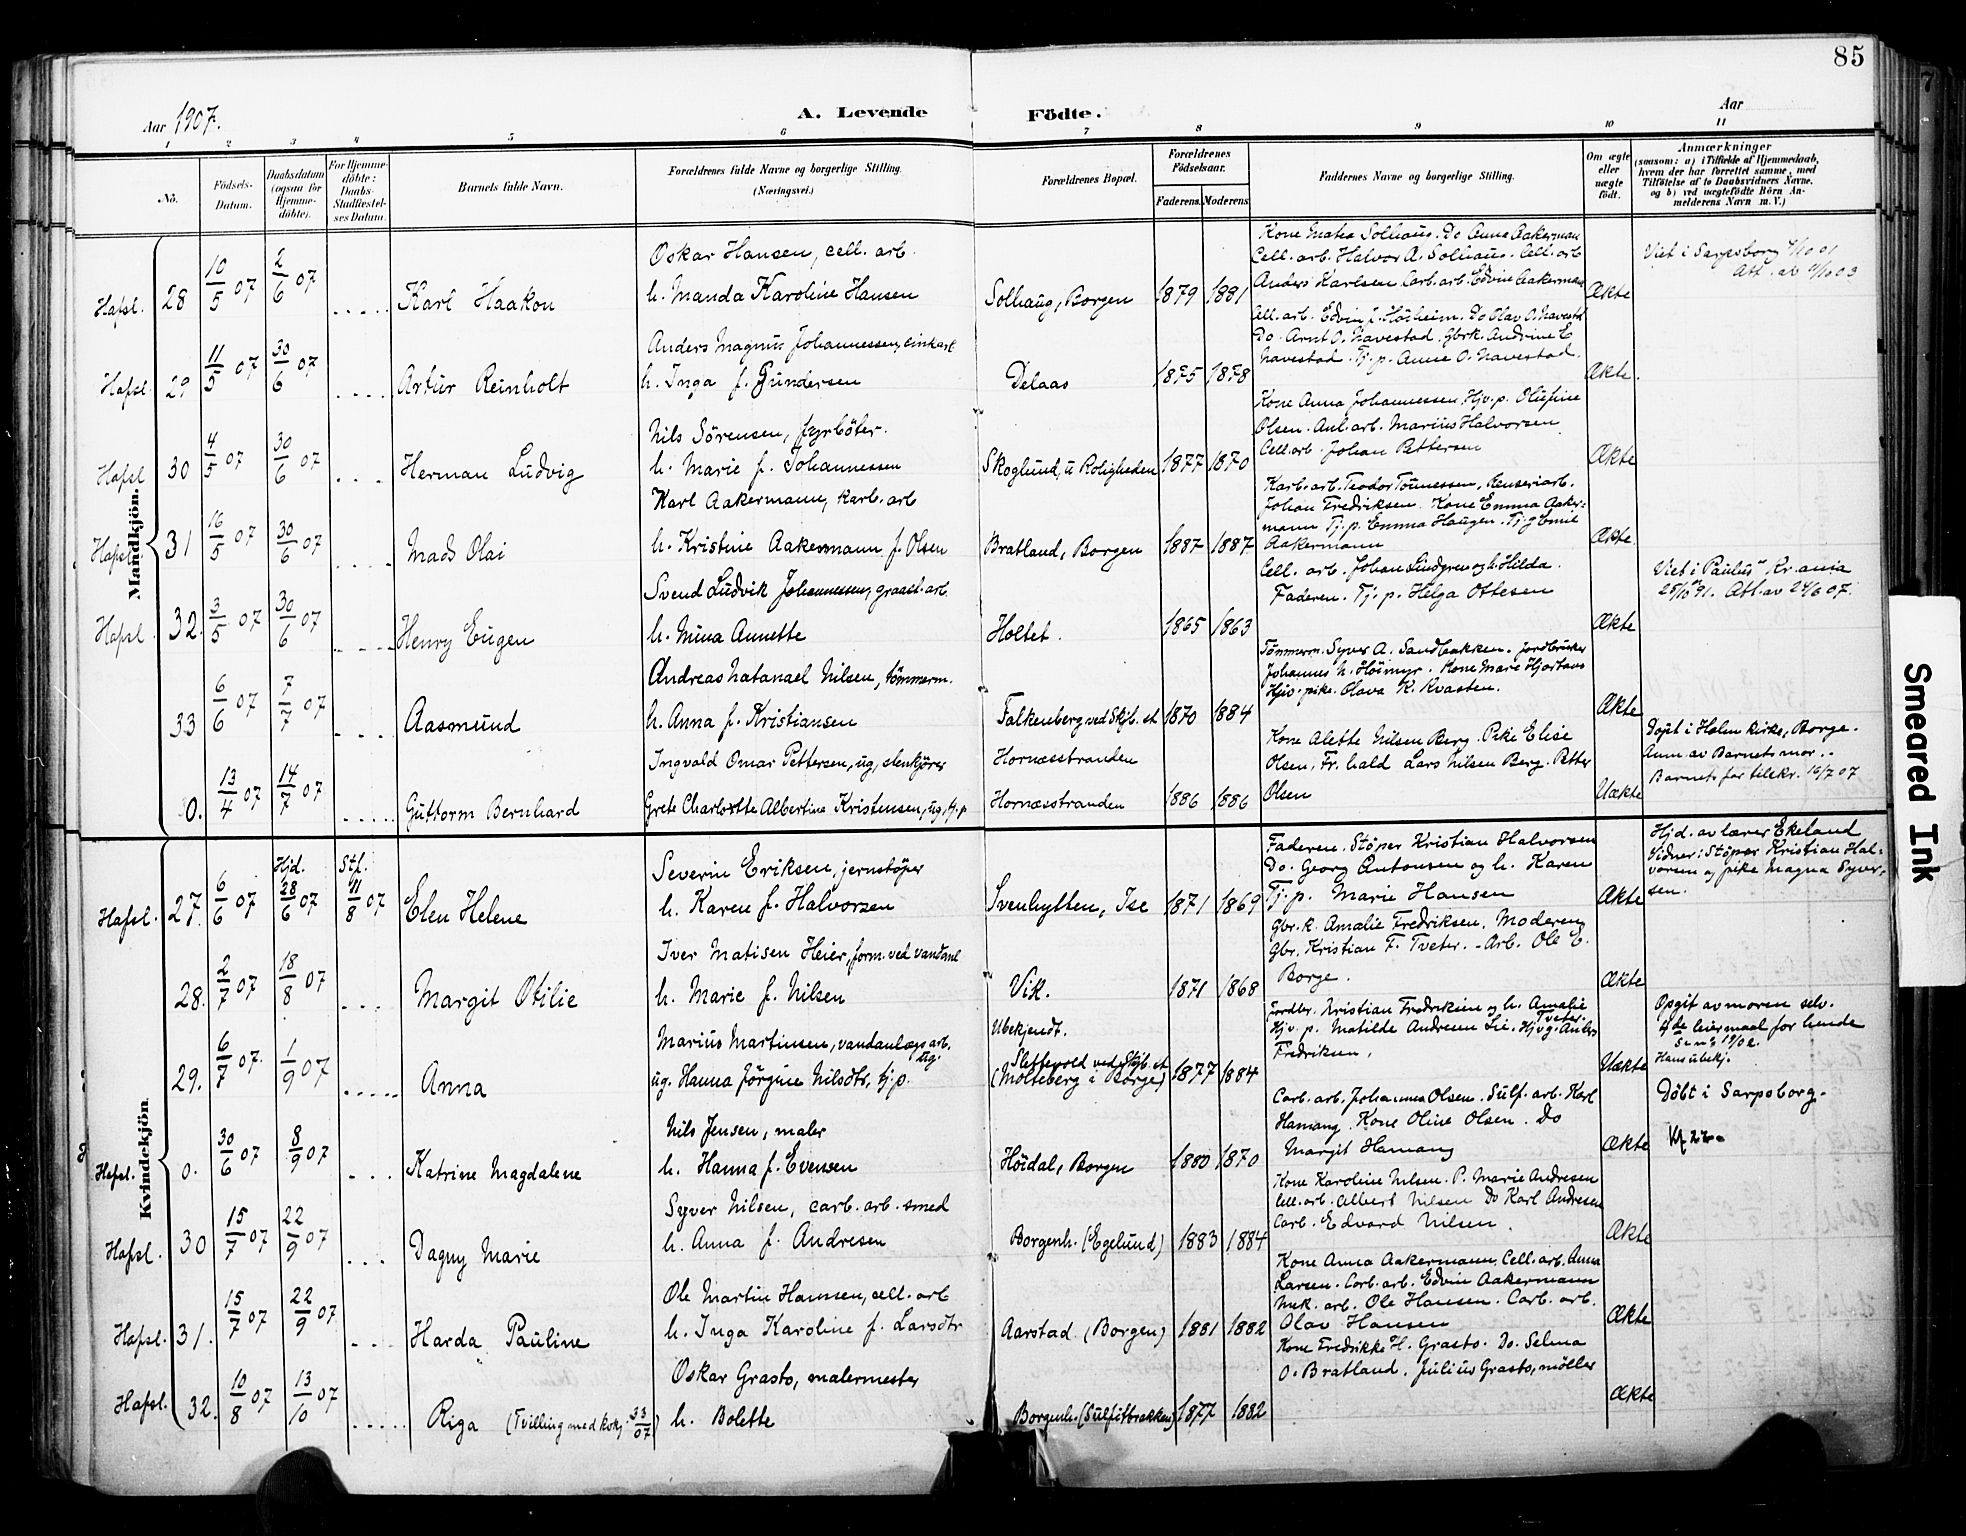 85
Aar 1907.
A. Levende Födte.
Aar
1 2 3 4 5 6 7 8 9 10 11
No.
Födsels-Datum.
Daabsdatum (ogsaa for Hjemme-döbte).
For Hjemme-döbte: Daabs-Stadfæstel-ses Datum.
Barnets fulde Navn.
Forældrenes fulde Navne og borgerlige Stilling. (Næringsvei.)
Forældrenes Bopæl.
Forældrenes Födselsaar.
Faderens. Moderens.
Faddernes Navne og borgerlige Stilling.
Om ægte eller uægte födt.
Anmærkninger
(saasom: a) i Tilfælde af Hjemmedaab,
hvem der har forrettet samme, med
Tilföielse af to Daabsvidners Navne,
og b) ved uægtefödte Börn An-
melderens Navn m. V.)
Mandkjön.
Hafsl. 28 10/5 07 2/6 07 Karl Haakon
Oskar Hansen, cell. arb.
h. Manda Karoline Hansen
Solhaug, Borgen 1879 1881
Kone Matea Solhaug. Do Anna Aakerman
Cell. arb. Halvor A. Solhaug. Cell. arb
Anders Karlsen. Carb. arb. Edvin Aakerman
Ækte
Viet i Sarpsborg
Hafsl. 29 11/5 07 30/6 07 Artur Reinholt
Anders Magnus Johannessen,
h. Inga f. Gundersen
Delaas 1875 1878
Cell. arb. Edvin J. Høiheim. Do Olav O. Navestad
Do. Arnt O. Navestad. Gbrk. Andrine E.
Navestad. Tj. p. Anne O. Navestad.
Ækte.
Hafsl 30 4/5 07 30/6 07 Herman Ludvig
Nils Sörensen, fyrböter.
h. Marie f. Johannessen
Skoglund, u Roligheden 1877 1870
Kone Anna Johannessen, Hjv. p. Olufine
Olsen. Anl. arb. Marius Halvorsen
Cell. arb. Johan Pettersen
Ækte
Hafsl. 31 16/5 07 30/6 07 Mads Olai
Karl Aakermann, karb. arb
h. Kristine Aakermann f. Olsen
Bratland, Borgen 1887 1887
Karb. arb. Teodor Tönnessen, Renseriarb.
Johan Fredriksen. Kone Emma Aaker-
mann Tj. p. Emma Haugen. Tj. g. Emil
Aakermann
Ækte.
Hafsl. 32. 3/5 07 30/6 07 Henry Eugen
Svend Ludvik Johannessen, graast. arb.
h. Mina Annette
Holtet. 1865 1863
Cell. arb. Johan Lindgren og h. Hilda.
Faderen. Tj. p. Helga Ottesen
Ækte
Viet i "Paulus", Kr.ania
25/10 91. Att. av 24/6 07.
33 6/6 07 7/7 07 Aasmund
Andreas Natanael Nilsen, tömmerm.
h. Anna f. Kristiansen
Falkenberg ved Skjb. st 1870 1884
Tömmerm. Syver A. Sandbakken. Jordbruker
Johannes h. Höimyr. Kone Mare Hjortaas
Hjv. pike. Olava K. Kvasten.
Ækte
0. 13/4 07 14/7 07 Guttorm Bernhard
Ingvald Omar Pettersen, ug, stenkjörer
Grete Charlotte Albertine Kristensen, ug. tj. p
Hornæsstranden
Hornæsstranden 1886 1886
Kone Alette Nilsen Berg. Pike Elise
Olsen, Fr.hald Lars Nilsen Berg. Petter
Olsen
Uækte
Döpt i Holm kirke, Borge.
Anm av Barnets mor.
Barnets far tilskr. 16/7 07
Kvindekjön.
Hafsl. 27. 6/6 07 Hjd. 28/6 07 Stf. 11/8 07 Elen Helene
Severin Eriksen, jernstöper
h. Karen f. Halvorsen
Svenhytten, Ise 1871 1869
Faderen. Støper Kristian Halvorsen
Do. Georg Antonsen og h. Karen
Tj. p. Marie Hansen
Ækte
Hjd. av lærer Ekeland
Vidner: Støper Kristian Hal-
vorsen og pike Magna Syver-
sen.
28. 2/7 07 18/8 07 Margit Otilie
Iver Matisen Heier, form. ved vandanl
h. Marie f. Nilsen
Vik. 1871 1868
Gbr. k. Amalie Fredriksen. Moderen
Gbr. Kristian F. Tveter. - Arb. Ole E.
Borge.
Ækte
29. 6/7 07. 1/9 07 Anna
Marius Martinsen, vandanlægsarb. ug.
ug. Hanna Jörgine Nilsdtr, tj. p.
Ubekjendt.
Slettevold ved Skjb. st
(Molteberg i Borge) 1877 1884
Jordbr. Kristian Fredriksen og h. Amalie Tveter.
Hjv. p. Matilde Andresen Lie. Hjv g. Anders
Fredriksen.
Uækte
Opgit av moren selv.
4de leiermaal for hende
Hans ubekj.
Hafsl. 0. 30/6 07 8/9 07 Katrine Magdalene
Nils Jensen, maler
h. Hanna f. Evensen
Höidal, Borgen 1880 1870
Carb. arb. Johannes Olsen. Sulf. arb. Karl
Hamang. Kone Oline Olsen. Do
Margit Hamang
Ækte
Döbt i Sarpsborg.
Hafsl. 30 15/7 07 22/9 07 Dagny Marie
Syver Nilsen, carb. arb. smed
h. Anna f. Andresen
Borgenh. (Egelund) 1883 1884
Kone Karoline Nilsen. P. Marie Andresen
Cell. arb. Albert Nilsen Do Karl Andresen
Carb. Edvard Nilsen.
Ækte
Hafsl. 31. 15/7 07 22/9 07 Harda Pauline
Ole Martin Hansen, cell. arb
h. Inga Karoline f. Larsdtr
Aarstad (Borgen) 1881 1882
Kone Anna Aakermann, Cell. arb. Anna
Larsen. Carb. arb. Edvin Aakermann
Mek. arb. Ole Hansen. Carb. arb.
Olav Hansen
Ækte
Hafsl. 32. 10/8 07 13/10 07 Riga (Tvilling med kokj. 33/07)
Oskar Grasto, malermester
h. Bolette
Borgenh. (Sulfitbrakken) 1877 1882
Kone Fredrikke H. Grasto. Do. Selma
O. Bratland. Julius Grasto, möller
Ækte
Smeared Ink